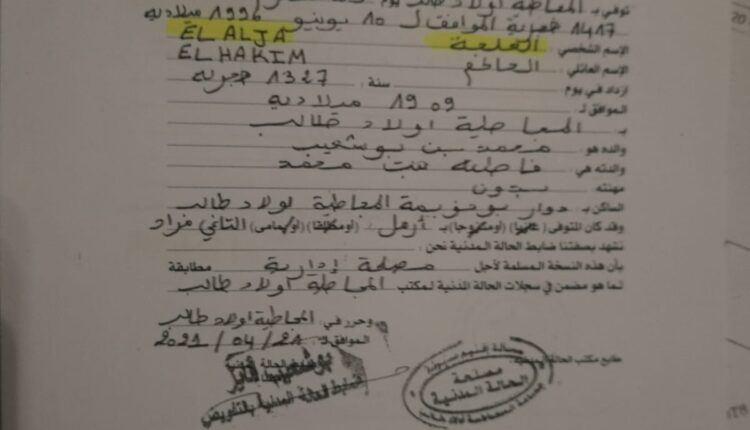 توفي بـ المعاطية اولاد طالب يوم
1417 هجرية الموافق لـ 10 يونيو 1996 ميلادية
EL ALJA
الإسم الشخصي العلجة
EL HAKIM
الإسم العائلي الحاكم
ازداد في يوم سنة 1327 هجرية
الموافق لـ 1909 ميلادية
بـ المعاطية اولاد طالب
والده هو محمد بن بوشعيب
والدته هي فاطنة بنت محمد
مهنته بدون
الساكن بـ دوار المعاطية اولاد طالب
وقد كان المتوفى (أومتزوجا) بـ أرمل (أومطلقا)
نشهد بصفتنا ضابط الحالة المدنية نحن
بأن هذه النسخة المسلمة لأجل مصلحة إدارية مطابقة
لما هو مضمن في سجلات الحالة المدنية لمكتب المعاطية اولاد طالب
وحرر في المعاطية اولاد طالب
الموافق لـ 2021 / 04 / 21
طابع مكتب الحالة المدنية
مصلحة
الحالة المدنية
ضابط الحالة المدنية بالتفويض